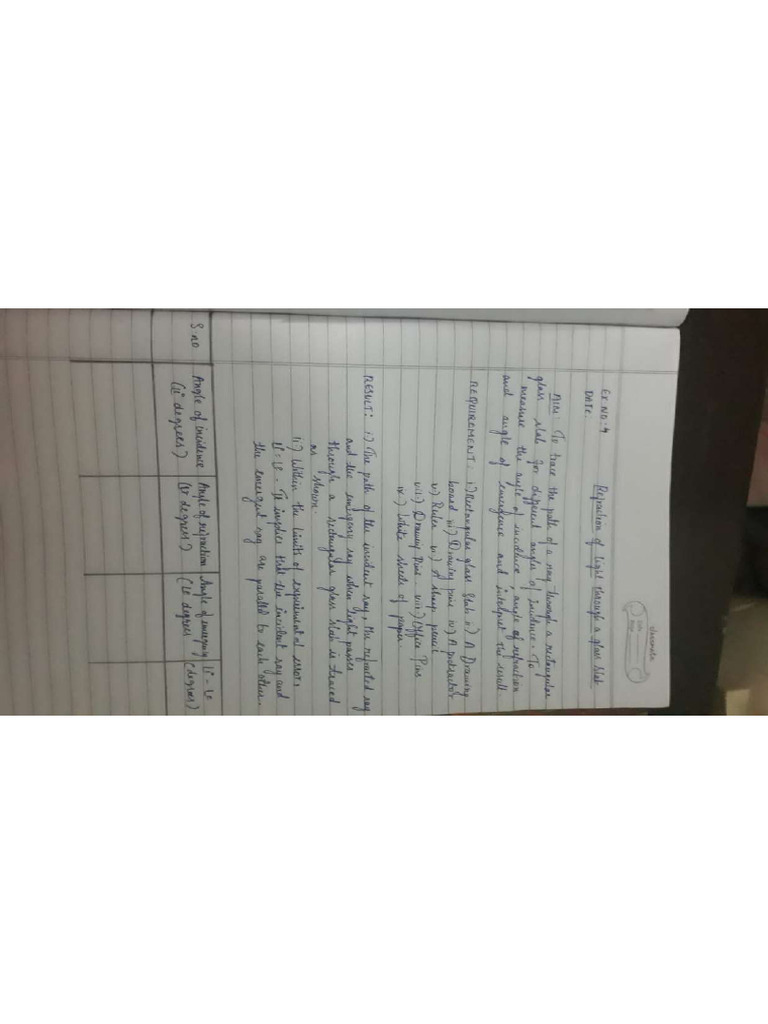 classmate
Date
Page
EX.NO: 4 Refraction of Light through a glass slab
DATE:
AIM: To trace the path of a ray through a rectangular
glass slab for different angles of incidence. To
measure the angle of incidence, angle of refraction
and angle of emergence and interpret the result
REQUIREMENT: i) Rectangular glass Slab ii) A Drawing
board iii) Drawing pins iv) A protractor
v) Ruler vi) A sharp pencil
vii) Drawing Pins. viii) Office Pins
ix) White sheets of paper
RESULT: i) The path of the incident ray, the refracted ray
and the emergeny ray when light passes
through a rectangular glass slab is traced
as shown.
ii) Within the limits of experimental error,
Li° = Le - It implies that the incident ray and
the emergent ray are parallel to each other.
S:no Angle of incidence Angle of refraction Angle of emergeny Li° - Le
(Li° degrees) (Lr degrees) (Le degrees (degrees)